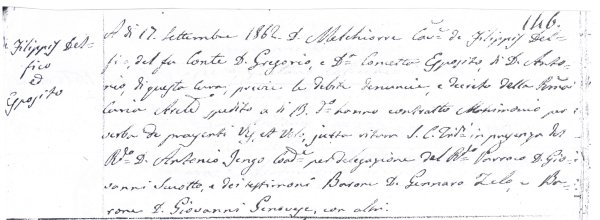 146.
de Filippis Del-
fico
ed
Esposito
A di 17. Settembre 1862. D. Melchiorre Cav.e de Filippis Del-
fico, del fu Conte D. Gregorio, e D.a Esposito, di D. Anto-
nio, di questa Cura, previe le debite denuncie, e decreto della
Curia spedito a' 13. d.o hanno contratto Matrimonio per
verba de praesenti Vis, et Volo, juxta ritum S. C. Trid. in presenza del
R.do D. Antonio Jengo per delegazione del R.do Parroco D. Gio-
vanni Scotto, e dei testimoni Barone D. Gennaro Zela, e Ba-
rone D. Giovanni Genovese, con altri.